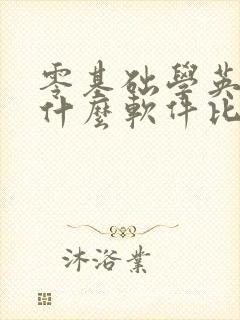 零基础學英
什麼軟件比
沐浴業